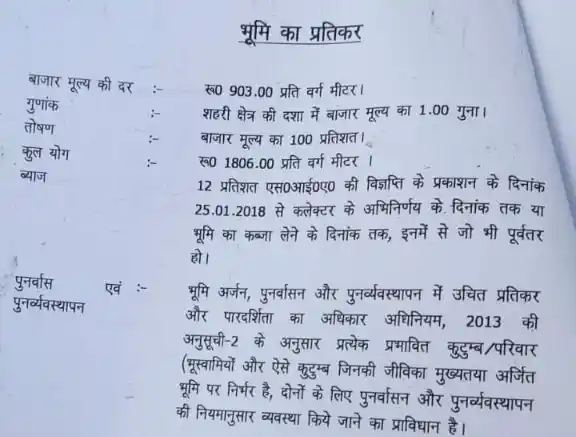 भूमि का प्रतिकर
बाजार मूल्य की दर :- रू0 903.00 प्रति वर्ग मीटर।
गुणांक :- शहरी क्षेत्र की दशा में बाजार मूल्य का 1.00 गुना।
तोषण :- बाजार मूल्य का 100 प्रतिशत।
कुल योग :- रू0 1806.00 प्रति वर्ग मीटर ।
ब्याज 12 प्रतिशत एस0आई0ए0 की विज्ञप्ति के प्रकाशन के दिनांक
25.01.2018 से कलेक्टर के अभिनिर्णय के दिनांक तक या
भूमि का कब्जा लेने के दिनांक तक, इनमें से जो भी पूर्वतर
हो।
पुनर्वास एवं :- भूमि अर्जन, पुनर्वासन और पुनर्व्यवस्थापन में उचित प्रतिकर
पुनर्व्यवस्थापन और पारदर्शिता का अधिकार अधिनियम, 2013 की
अनुसूची-2 के अनुसार प्रत्येक प्रभावित कुटुम्ब/परिवार
(भूस्वामियों और ऐसे कुटुम्ब जिनकी जीविका मुख्यतया अर्जित
भूमि पर निर्भर है, दोनों के लिए पुनर्वासन और पुनर्व्यवस्थापन
की नियमानुसार व्यवस्था किये जाने का प्राविधान है।